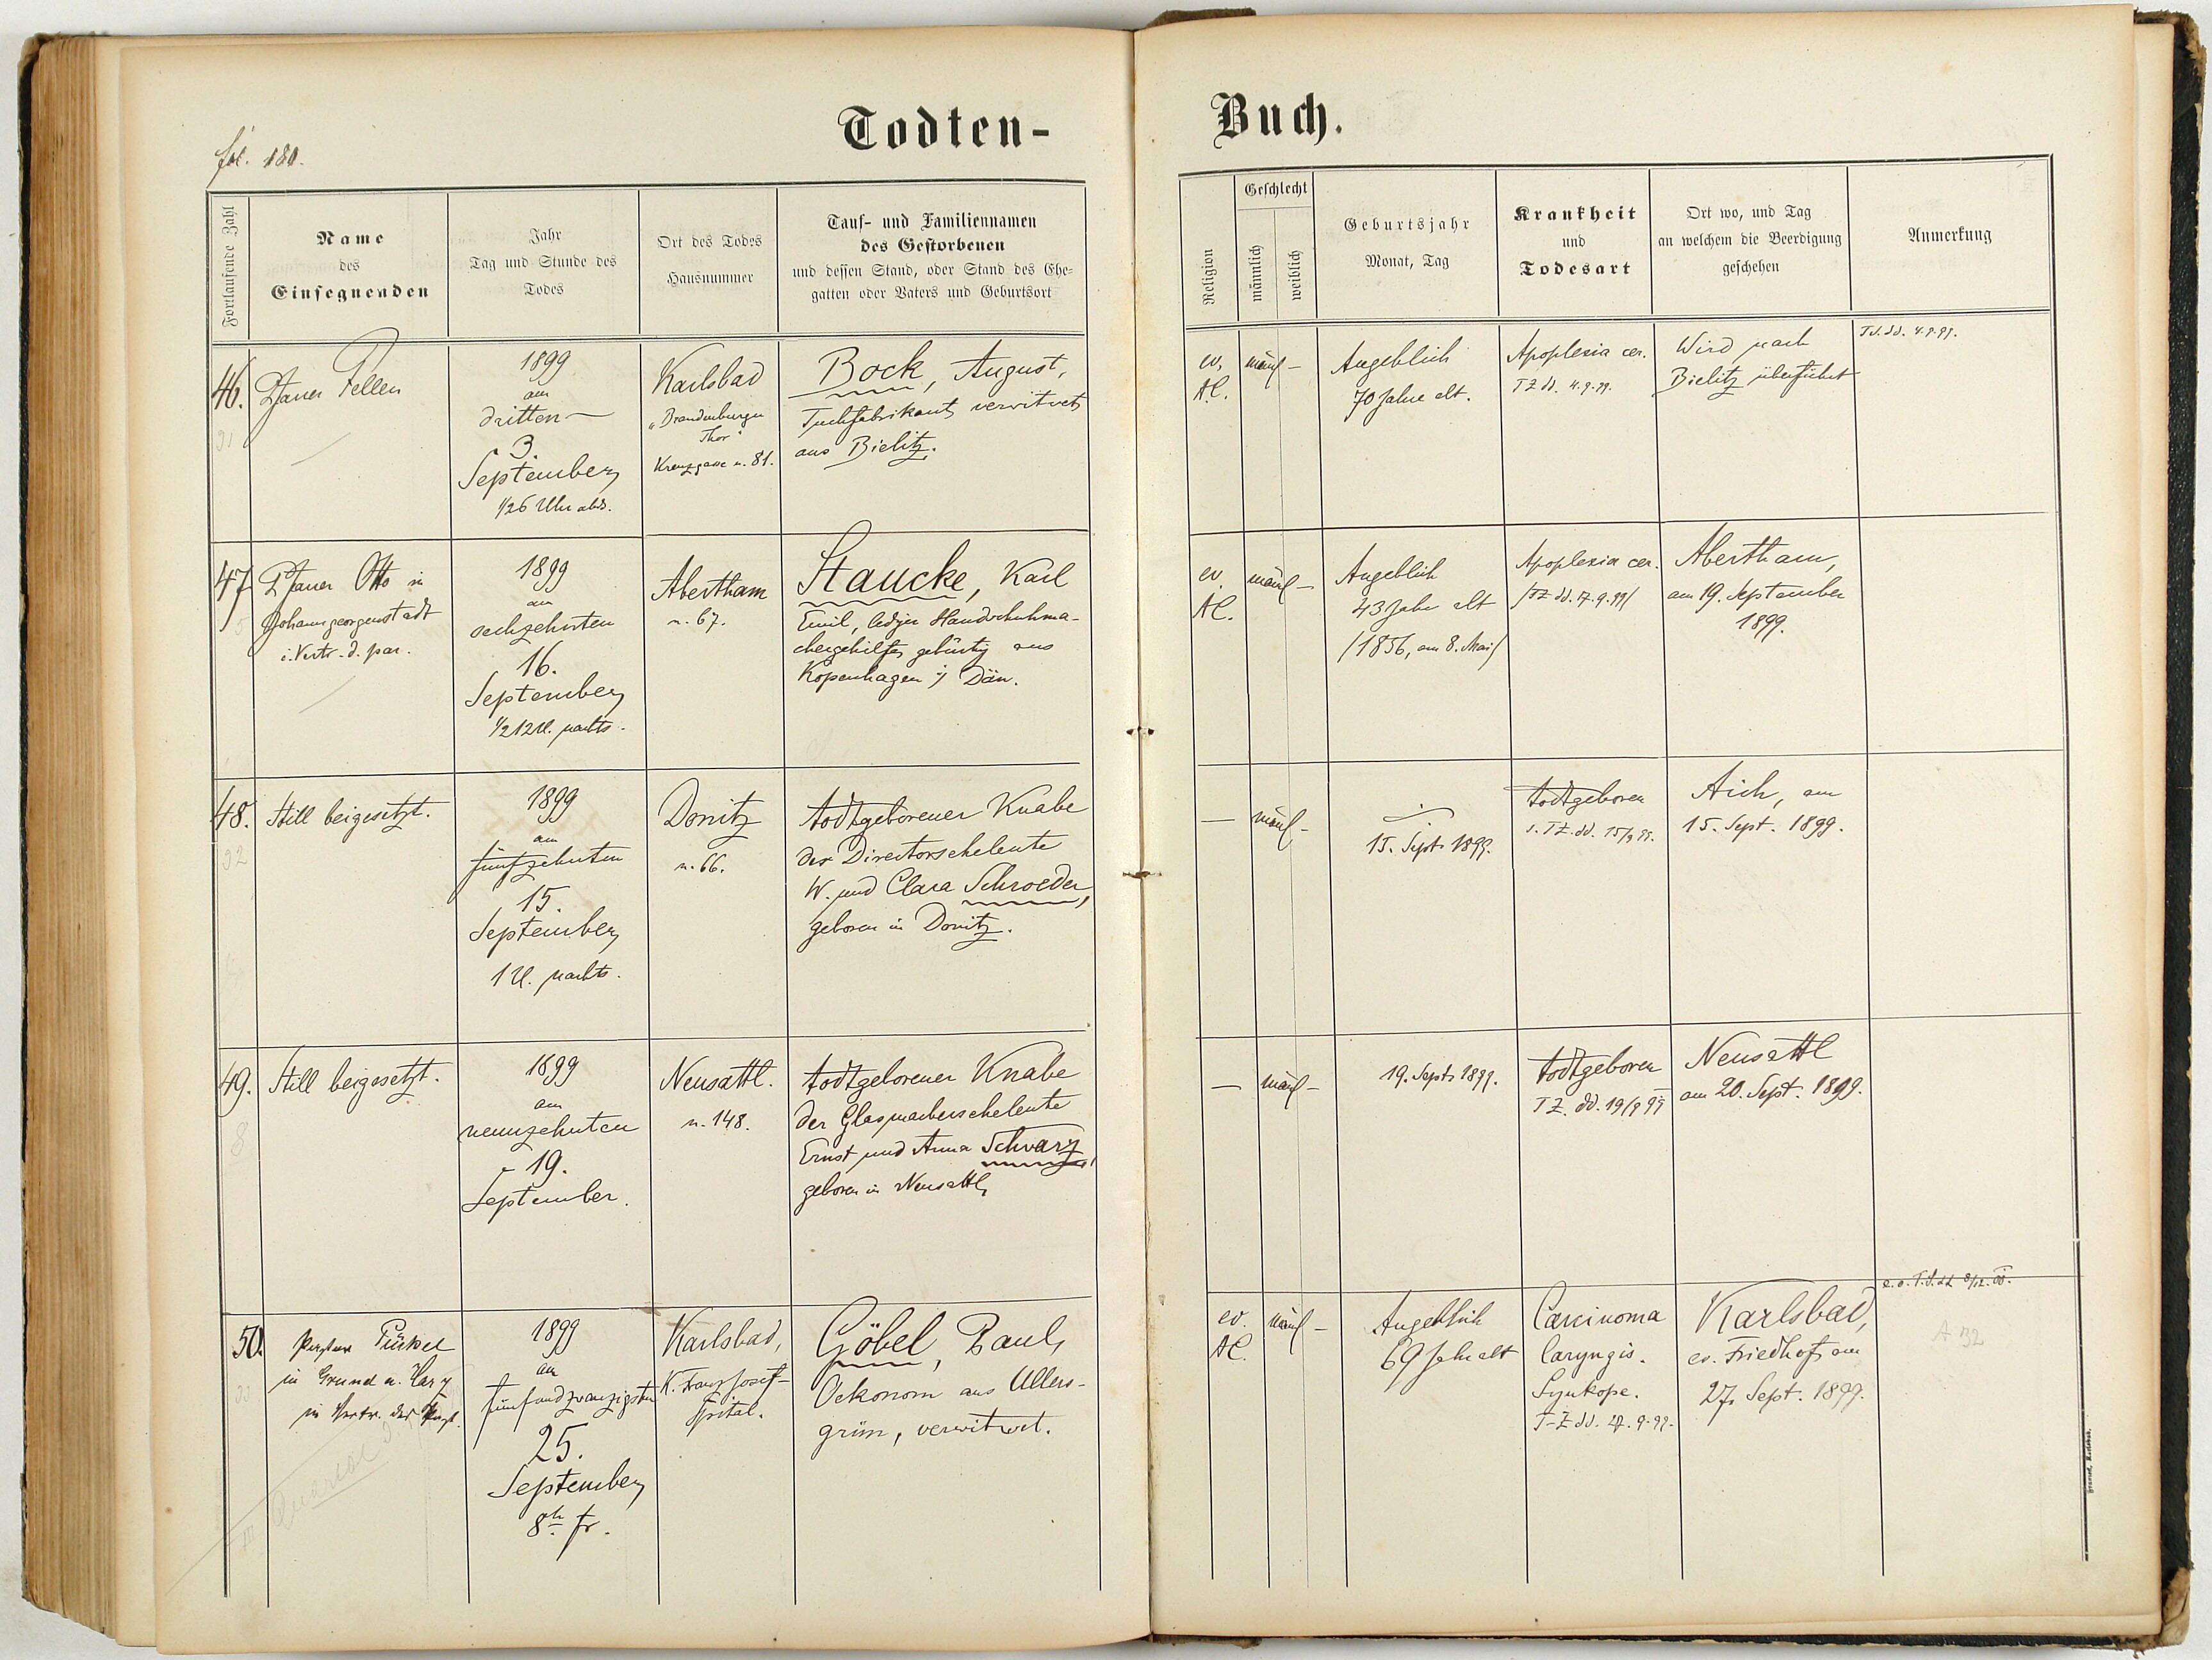 fol. 180.
Todten-
Buch.
Fortlaufende Zahl
Name
des
Einsegnenden
Jahr
Tag und Stunde des
Todes
Ort des Todes
Hausnummer
Tauf- und Familiennamen
des Gestorbenen
und dessen Stand, oder Stand des Ehe-
gatten oder Vaters und Geburtsort
Religion
Geschlecht
männlich
weiblich
Geburtsjahr
Monat, Tag
Krankheit
und
Todesart
Ort wo, und Tag
an welchem die Beerdigung
geschehen
Anmerkung
46.
Pfarrer Fellen
1899
am
dritten
3.
September
1/26 Uhr abds.
Karlsbad
"Brandenburger
Thor"
Kreuzgasse n. 81.
Bock, August,
Tuchfabrikant, verwitwet
aus Bielitz.
ev.
A.C.
männl –
Angeblich
70 Jahre alt.
Apoplexia cer.
TZ dd. 4.9.99.
Wird nach
Bielitz überführt
T.S. dd. 4.9.99.
47.
Pfarrer Otto in
Johanngeorgenstadt
i. Vertr. d. par.
1899
am
sechzehnten
16.
September
1/2 12 U. nachts.
Abertham
n. 67.
Staucke, Karl
Emil, lediger Handschuhma-
chergehilfe, gebürtig aus
Kopenhagen i/ Dän.
ev.
AC.
männl –
Angeblich
43 Jahr alt
/1856, am 8. Mai/
Apoplexia cer.
/TZ dd. 17.9.99/
Abertham,
am 19. September
1899.
48.
Still beigesetzt.
1899
am
fünfzehnten
15.
September
1 U. nachts.
Donitz
n. 66.
todtgeborener Knabe
der Directorseheleute
W. und Clara Schroeder,
geboren in Donitz.
—
männl –
15. Sept. 1899.
todtgeboren
s. TZ. dd. 15/9 99.
Aich, am
15. Sept. 1899.
49.
Still beigesetzt.
1899
am
neunzehnten
19.
September.
Neusattl.
n. 148.
todtgeborener Knabe
der Glasmacherseheleute
Ernst und Anna Schwarz,
geboren in Neusattl,
—
männl –
19. Sept. 1899.
todtgeboren
TZ. dd. 19/9 99
Neusattl
am 20. Sept. 1899.
50.
Pastor
in Grund a. Harz
in Vertr. des
1899
am
fünfundzwanzigsten
25.
September
8h fr.
Karlsbad,
K. Franz Josef-
Spital.
Göbel, Paul,
Oekonom aus Ullers-
grün, verwitwet.
ev.
AC.
männl –
Angeblich
69 Jahr alt
Carcinoma
laryngis.
Synkope.
T-Z dd. 27.9.99.
Karlsbad,
ev. Friedhof, am
27. Sept. 1899.
A 32
III Quartal